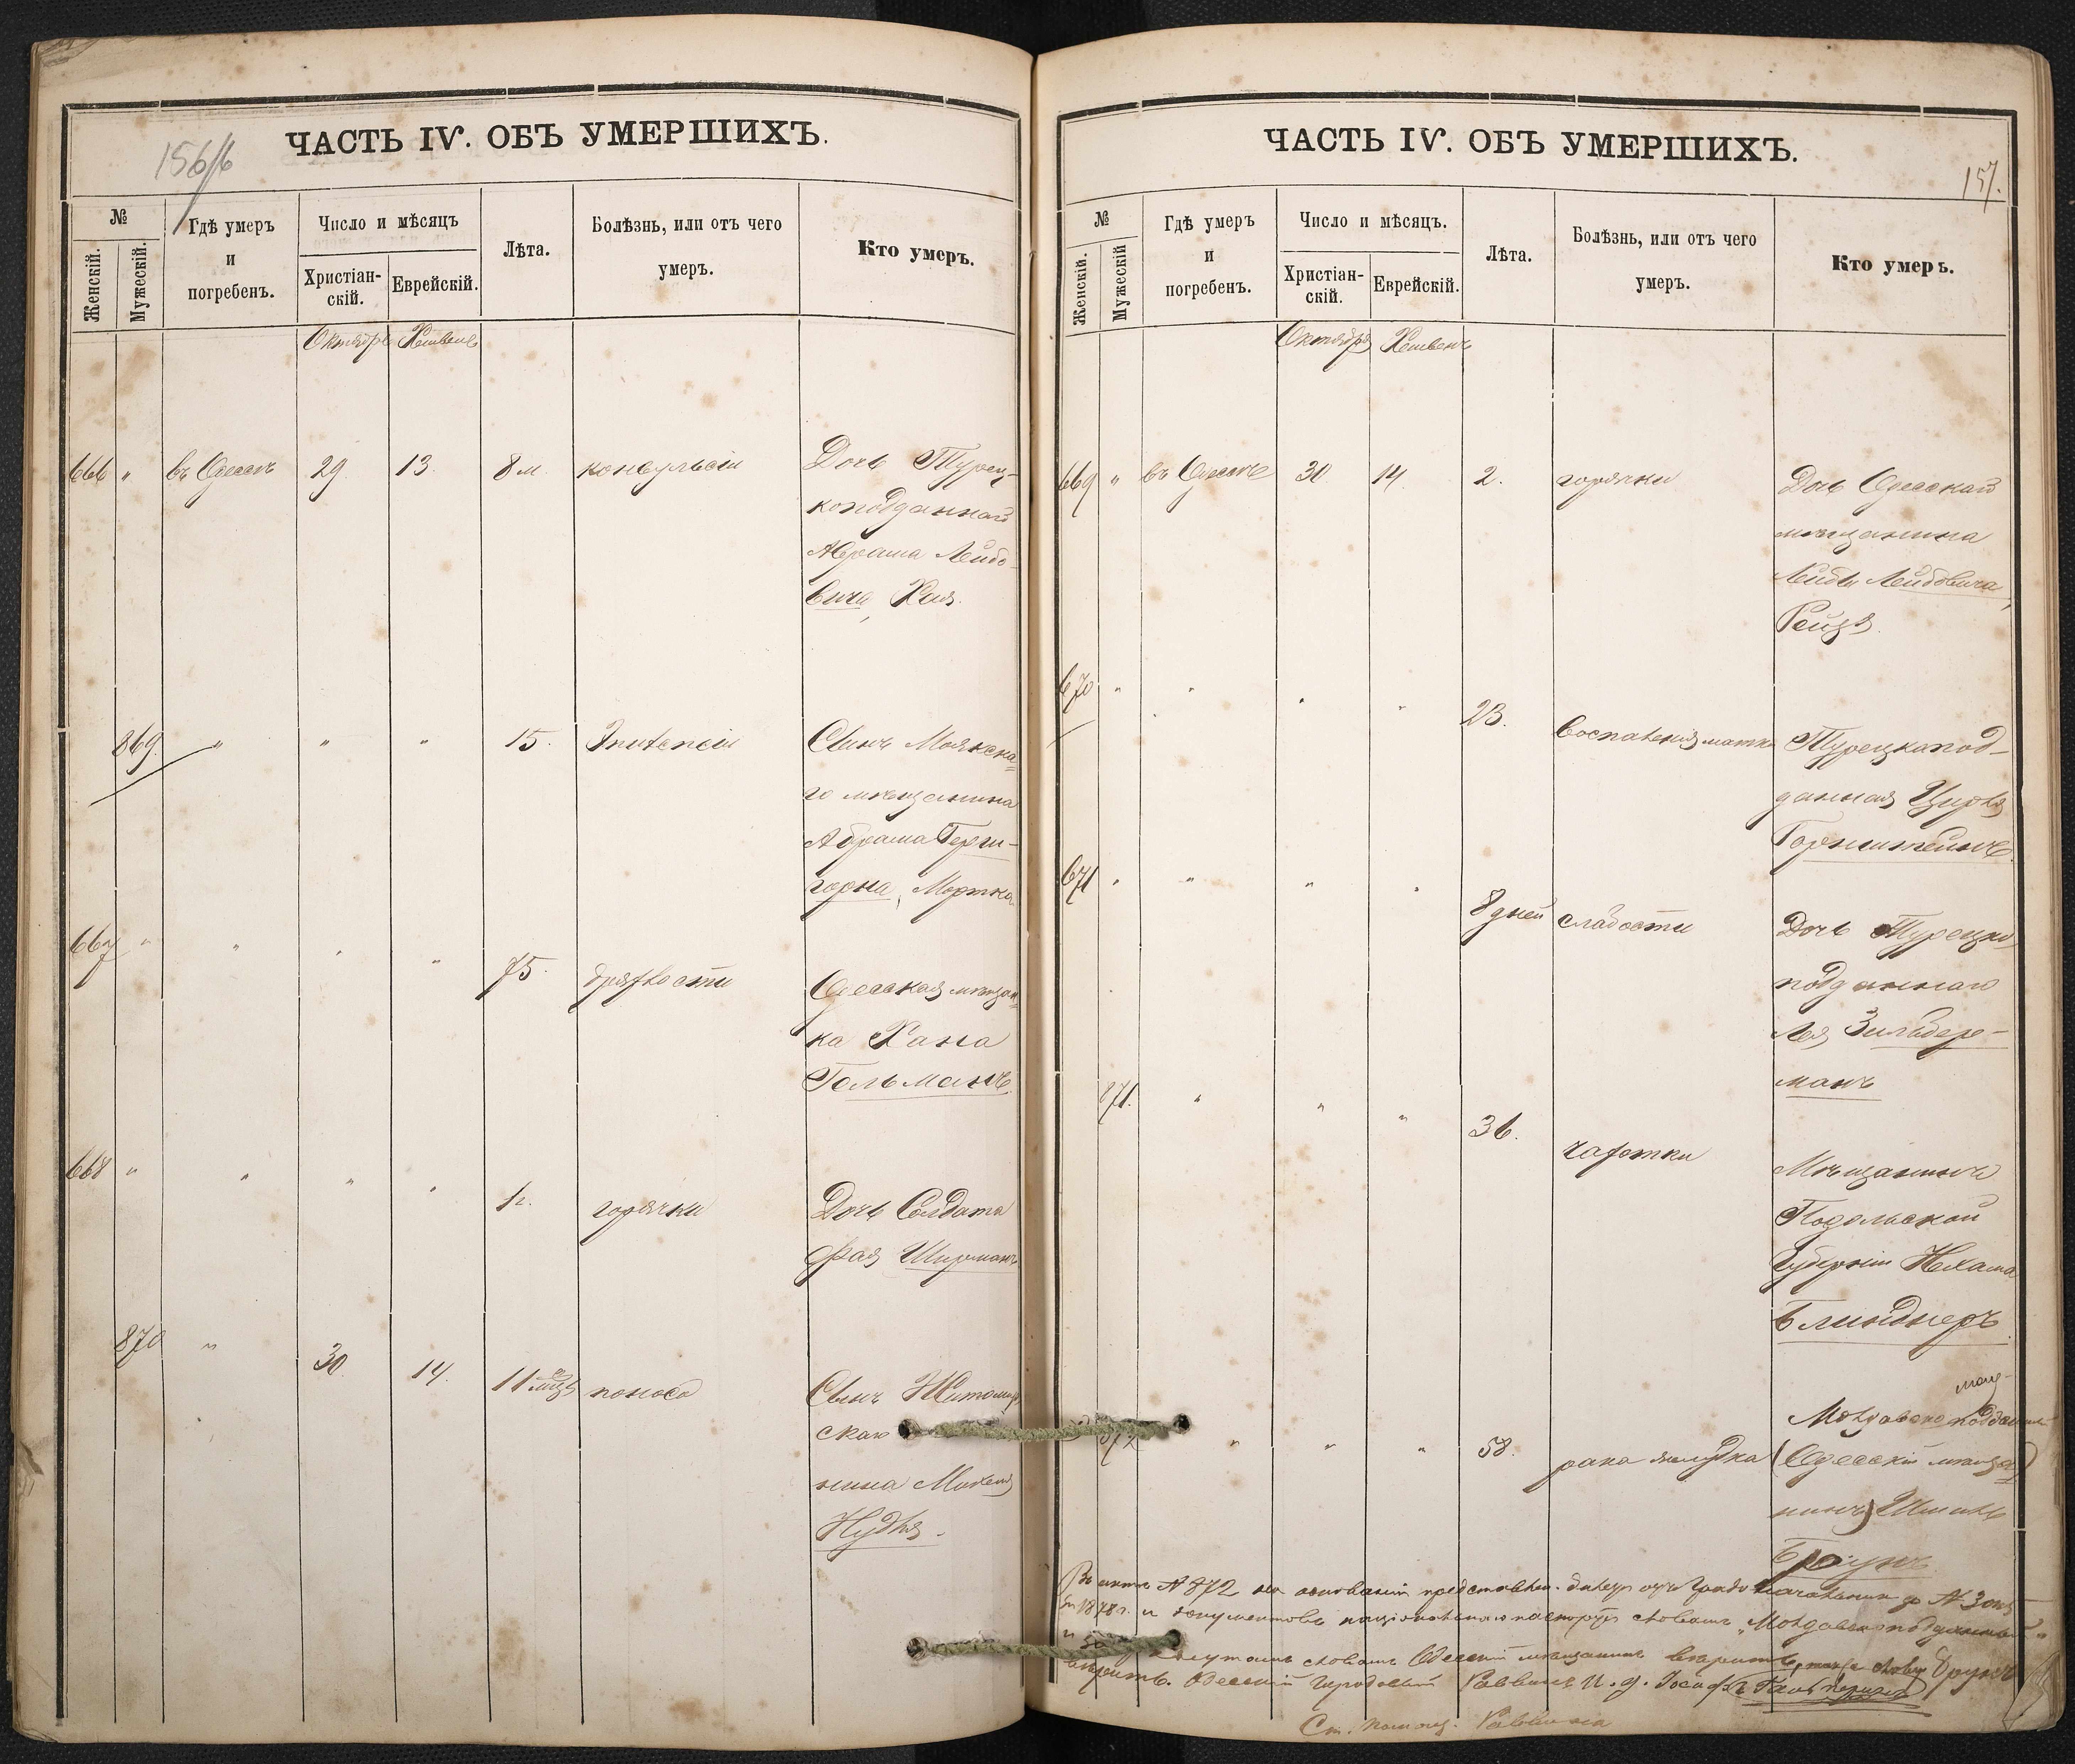 156/6
ЧАСТЬ IV. ОБЪ УМЕРШИХЪ.
№
Женскій.
Мужескій.
Гдѣ умеръ
и
погребенъ.
Число и мѣсяцъ
Христіан-
скій.
Еврейскій.
Лѣта.
Болѣзнь, или отъ чего
умеръ.
Кто умеръ.
Октябрь Хешвенъ
666 " въ Одессѣ 29 13 8 м. конвульсіи Дочь Турец-
коподданнаго
Абрама Лейбо-
вича, Хая.
869. " " " 15. Сынъ
го мѣщанина
Абрама Герш-
горна, Мортко
667 " " " " 75. дряхлости Одесская мѣщан-
ка Хана
Гольманъ.
668 " " " " 1 г. горячки Дочь Солдата
Фая Ширманъ
870 " 30 14. 11 мѣс. поноса Сынъ Житомир-
скаго
нина Михеля
Нудля.
157.
ЧАСТЬ IV. ОБЪ УМЕРШИХЪ.
№
Женскій.
Мужескій
Гдѣ умеръ
и
погребенъ.
Число и мѣсяцъ.
Христіан-
скій.
Еврейскій.
Лѣта.
Болѣзнь, или отъ чего
умеръ.
Кто умеръ.
Октября Хешвенъ
669 " въ Одессѣ 30 14 2. горячки Дочь Одесскаго
мѣщанина
Лейбы Лейбовича,
Рейзя.
670 " " " " 23. воспаленія матки Турецкопод-
данная Цирля
Горнштейнъ.
671 " " " " 8 дней слабости Дочь Турецко
подданнаго
Лея Зильбер-
манъ
871. " " " 36. чахотки Мѣщанинъ
Подольской
Губерніи Нехама
Блиндеръ
872 " " " 58. рака желудка Молдавско подданный
(Одесскій мѣща-
нинъ)
Броунъ
Въ актѣ № 872 на основаніи
1878 г. и документовъ національнаго паспорта словамъ „Молдавско подданный"
словамъ Одесскій мѣщанинъ вѣрить,
вѣрить. Одесскій Городовой Раввинъ И. д.
Ст. помощ. Раввина